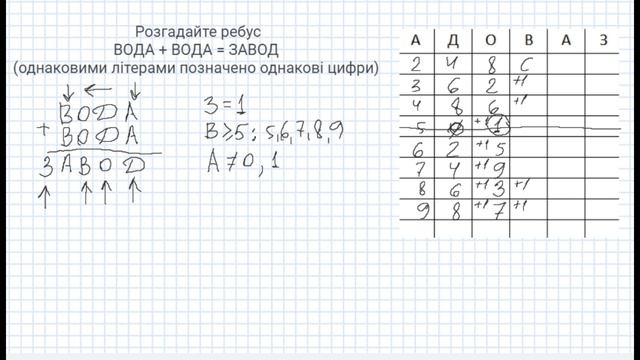 Розгадайте ребус
ВОДА + ВОДА = ЗАВОД
(однаковими літерами позначено однакові цифри)
ВОДА
+ ВОДА
ЗАВОД
З = 1
В ≥ 5 : 5,6,7,8,9
А ≠ 0, 1
А Д О В А З
2 4 8 С
3 6 2 +1
4 8 6 +1
5 0 +1 1
6 2 +1 5
7 4 +1 9
8 6 +1 3 +1
9 8 +1 7 +1